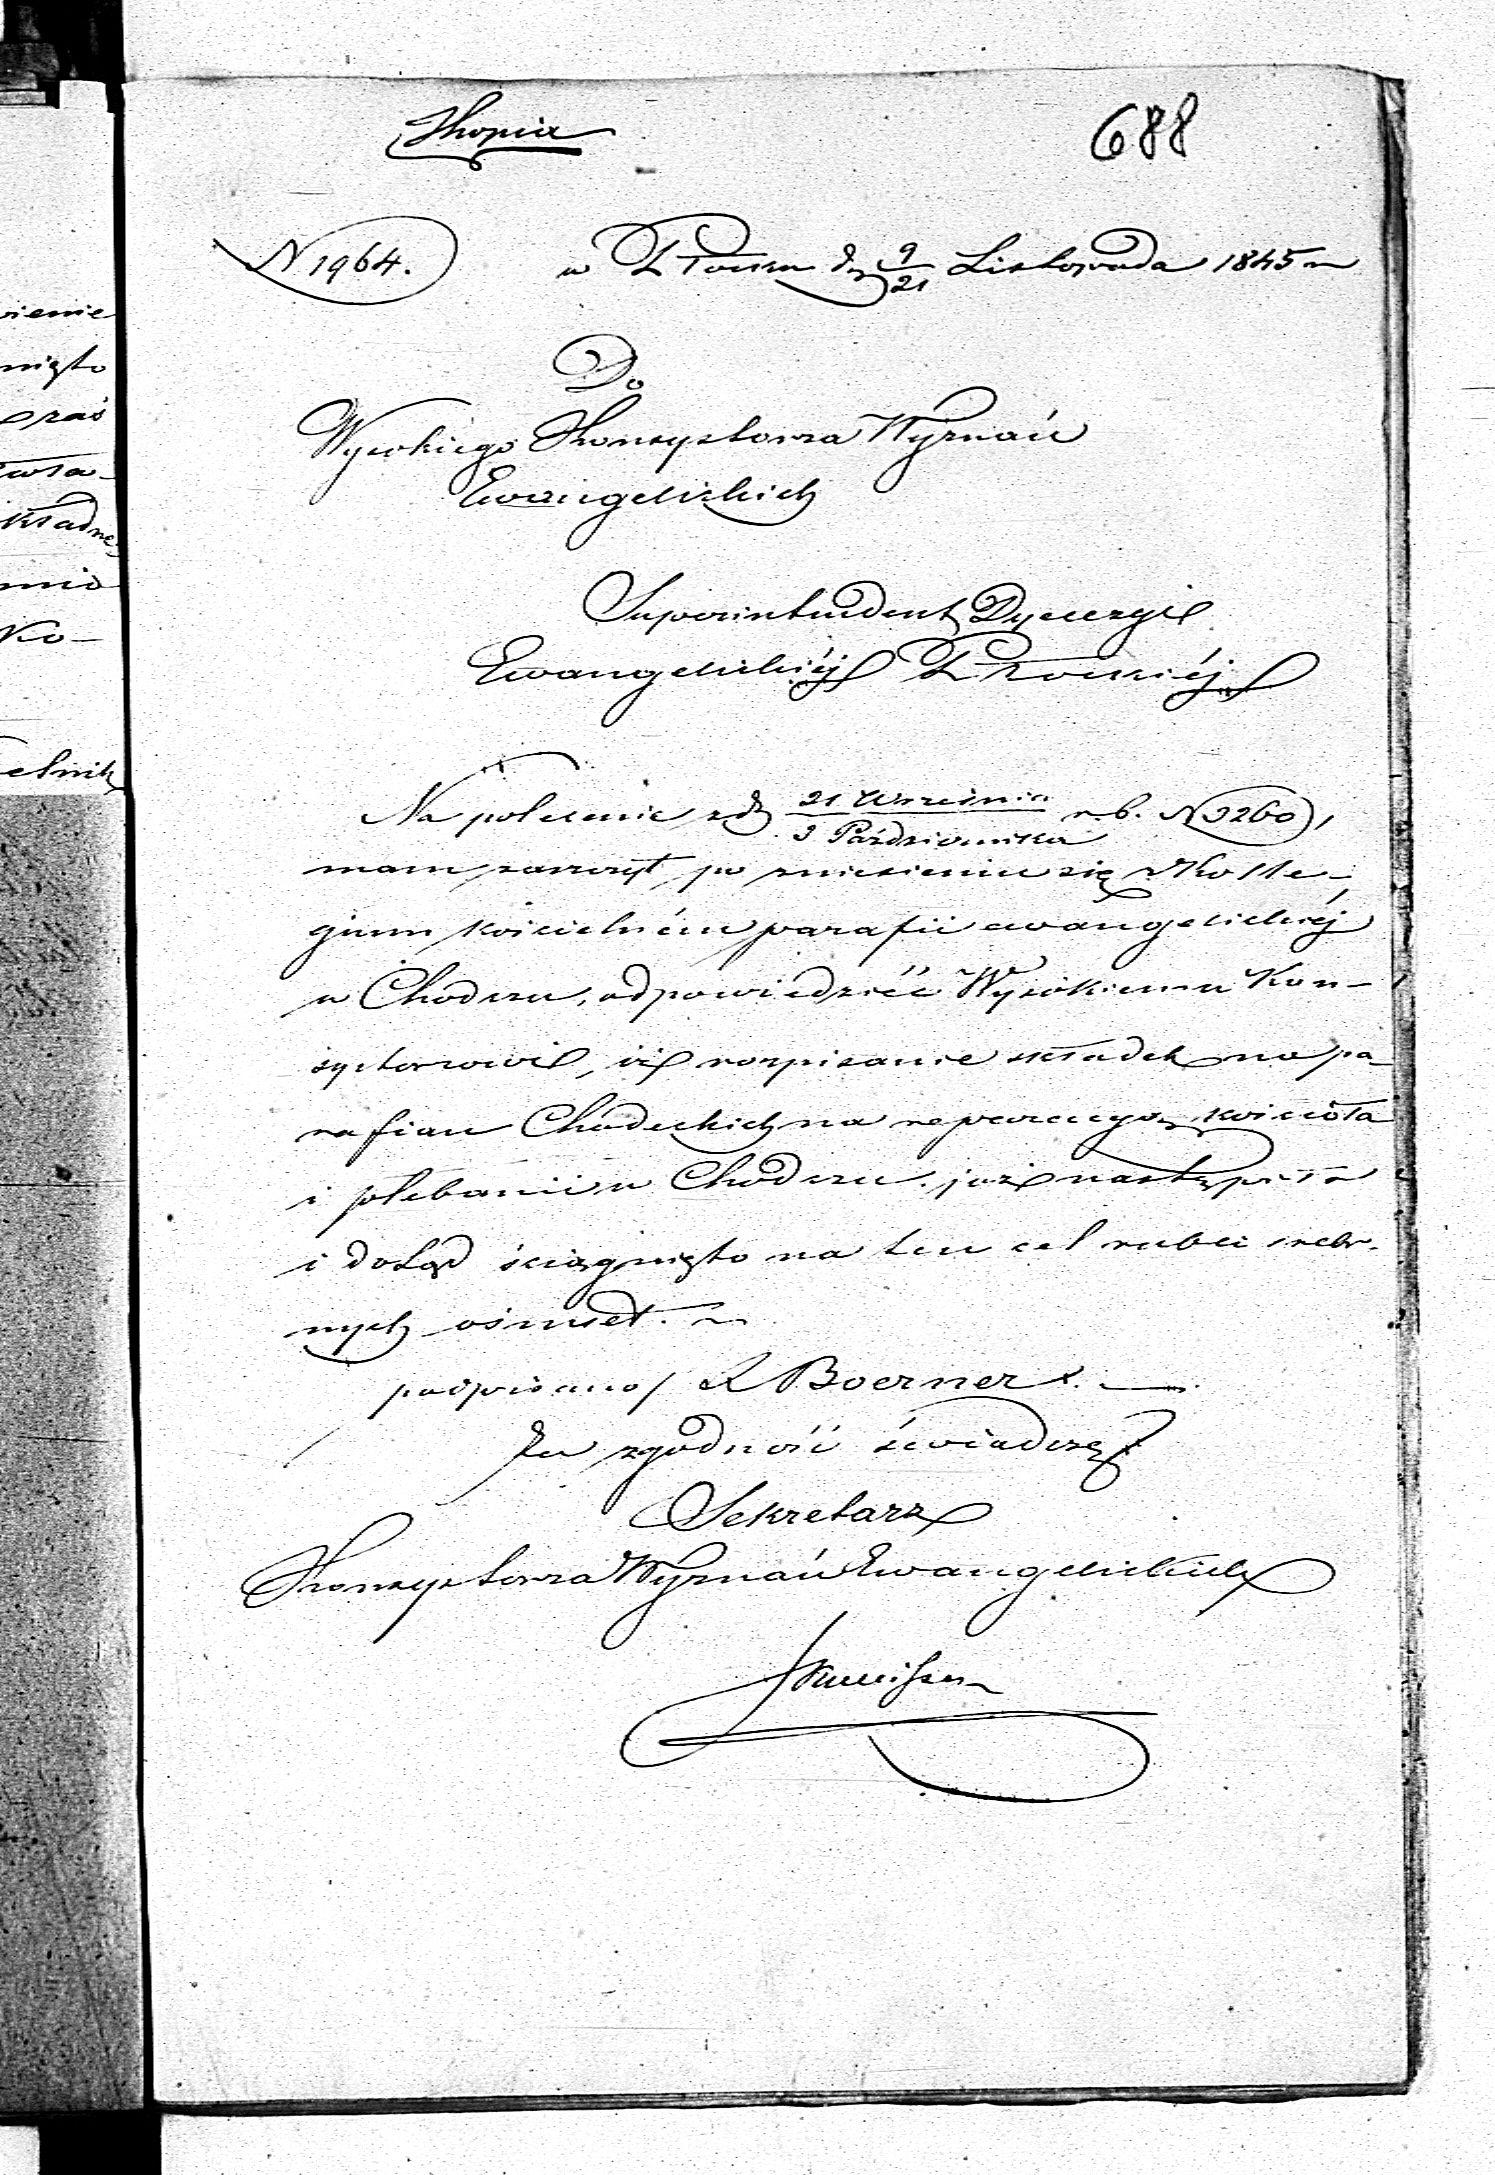 Kopia
688
N 1964.
w Płocku d. 9/21 Listopada 1845
Do
Wysokiego Konsystorza Wyznań
Ewangelickich
Superintendent Dyecezyi
Ewangelickiéj Płockiéj
Na polecenie z d. 21 Września / 3 Października r. b. N 3260,
mam zaszczyt, po zniesieniu się z Kolle-
gium kościelném parafii ewangelickiéj
w Chodczu, odpowiedzieć Wysokiemu Kon-
systorzowi, iż rozpisanie składek na pa-
rafian Chodeckich na reperacyą kościoła
i plebanii w Chodczu już nastąpiło
i dotąd ściągnięto na ten cel rubli srebr-
nych ośmset.
podpisano / L Boerner
Za zgodność świadczę
Sekretarz
Konsystorza Wyznań Ewangelickich
wienie
nięto
zaś
kładne
Ko-